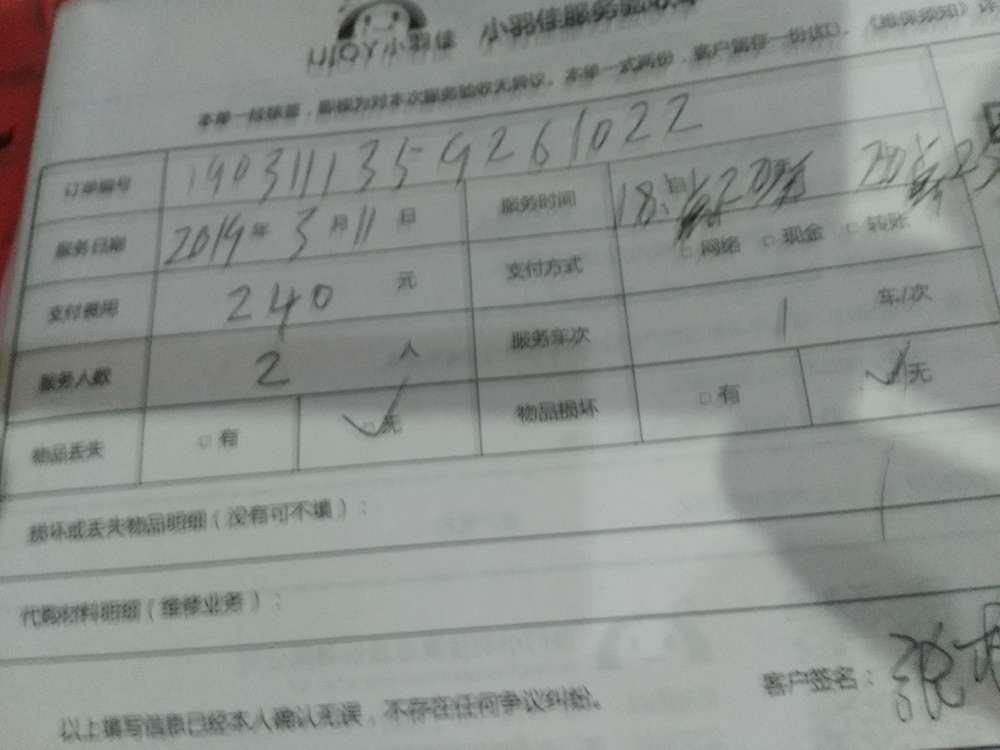 UIOY小羽佳 小羽佳服务验收单
本单一经签署，即视为对本次服务验收无异议。本单一式两份，客户留存一份
订单编号 1903111359261022
服务日期 2019年 3月11日 服务时间
支付费用 240 元 支付方式 □网络 □现金 □转账
服务人数 2 人 服务车次 1 车/次
物品丢失 □有 ✓无 物品损坏 □有 ✓无
损坏或丢失物品明细（没有可不填）：
代购材料明细（维修业务）：
以上填写信息已经本人确认无误，不存在任何争议纠纷。 客户签名：张